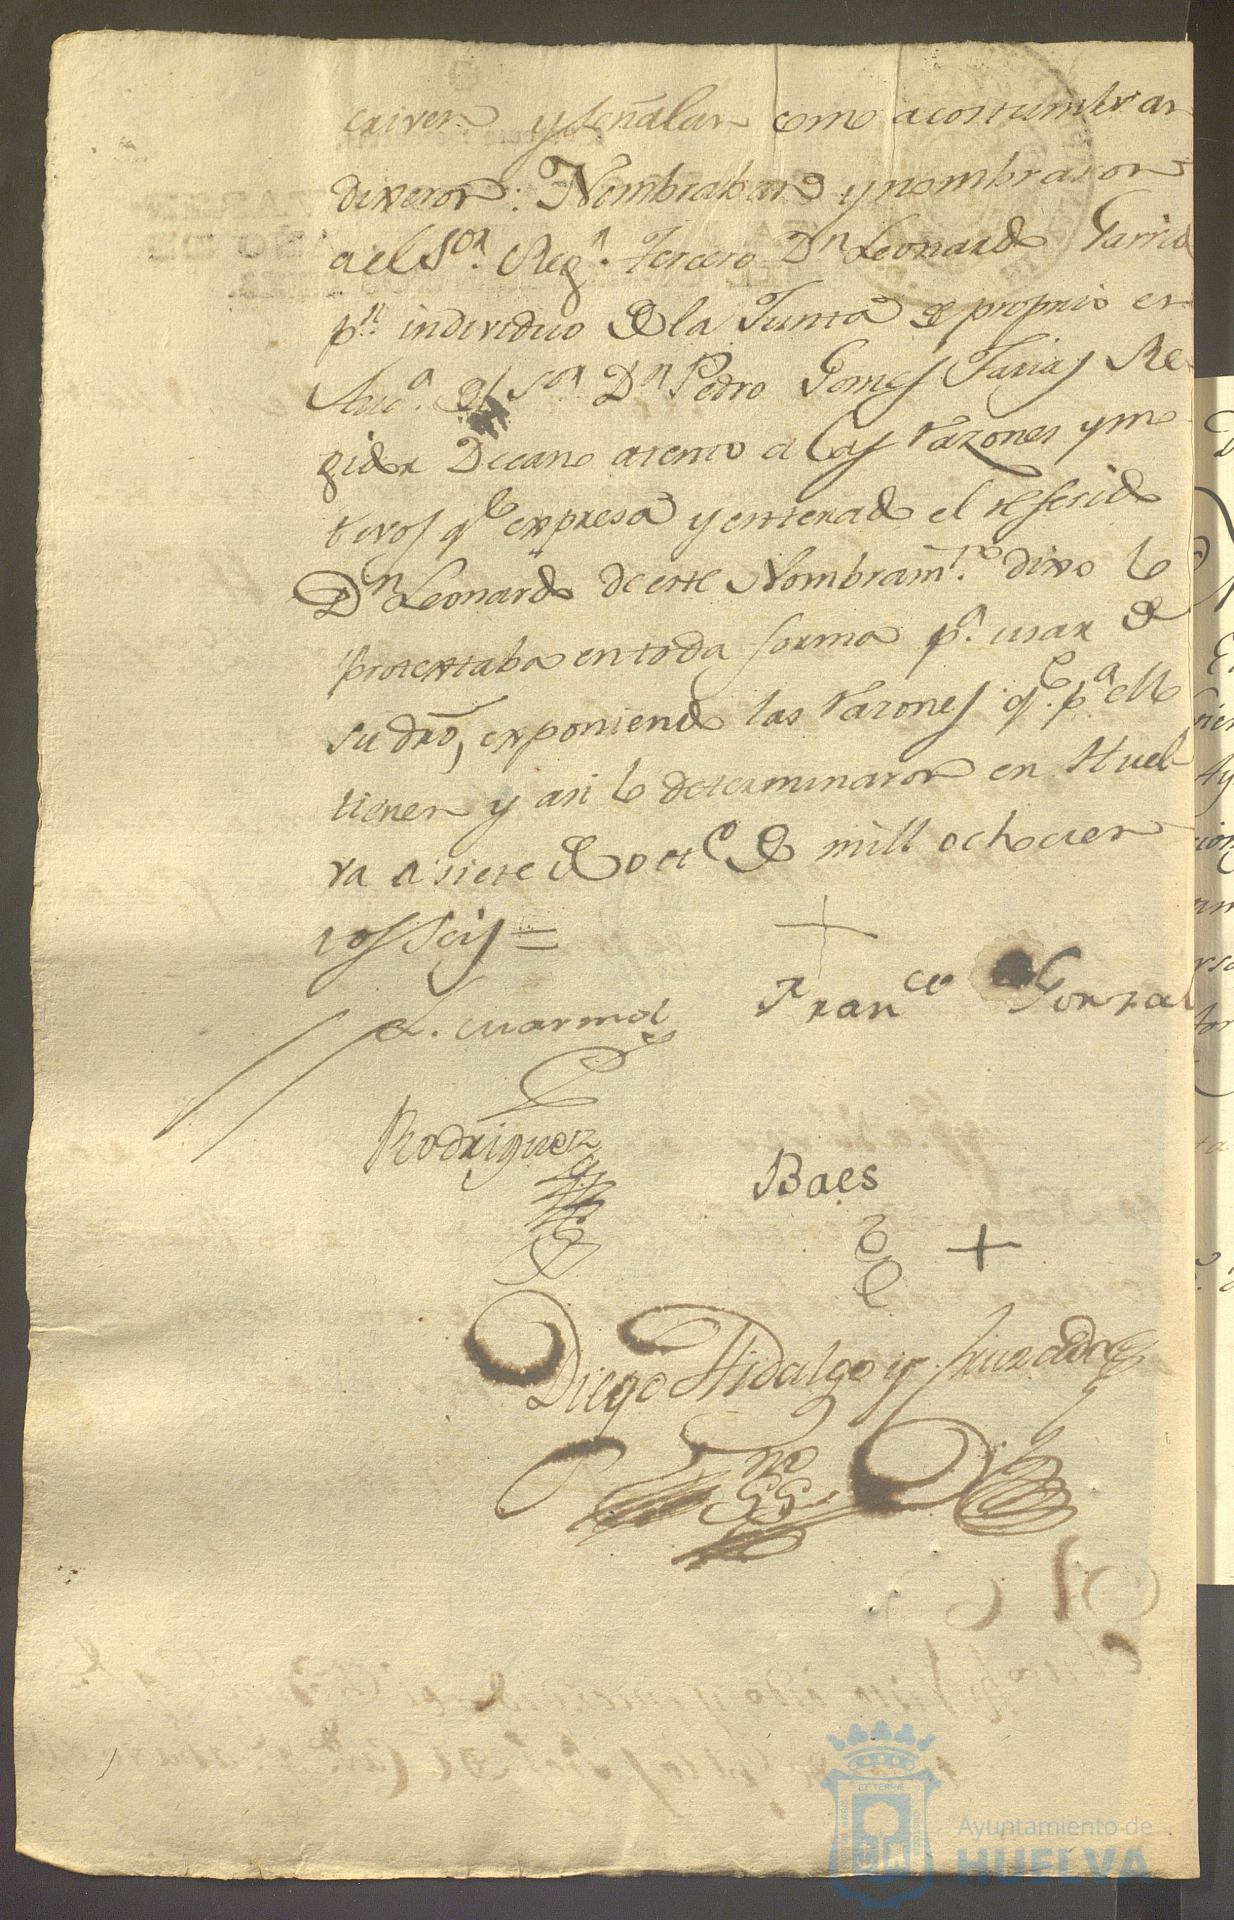 criven y señalan como acostumbrar
dixeron: Nombraban y nombraron
a el Sor. Regr. Tercero Dn Leonardo Garrido
pr. individuo de la Junta de proprio en
el Sor. Dn Pedro Gomes Farias Re
gidor Decano atento a las razones y mo
tivos qe expresa y enterado el referido
Dn Leonardo de este Nombramto. dixo lo
protextaba en toda forma pa. usar de
su dro, exponiendo las razones qe. pa ello
tienen y asi lo determinaron en Huel
va a siete de octe de mill ochocien
tos Seis =
Franco Gonzal
Rodriguez
Baes
Diego Hidalgo y
no
SS
Ayuntamiento de
HUELVA